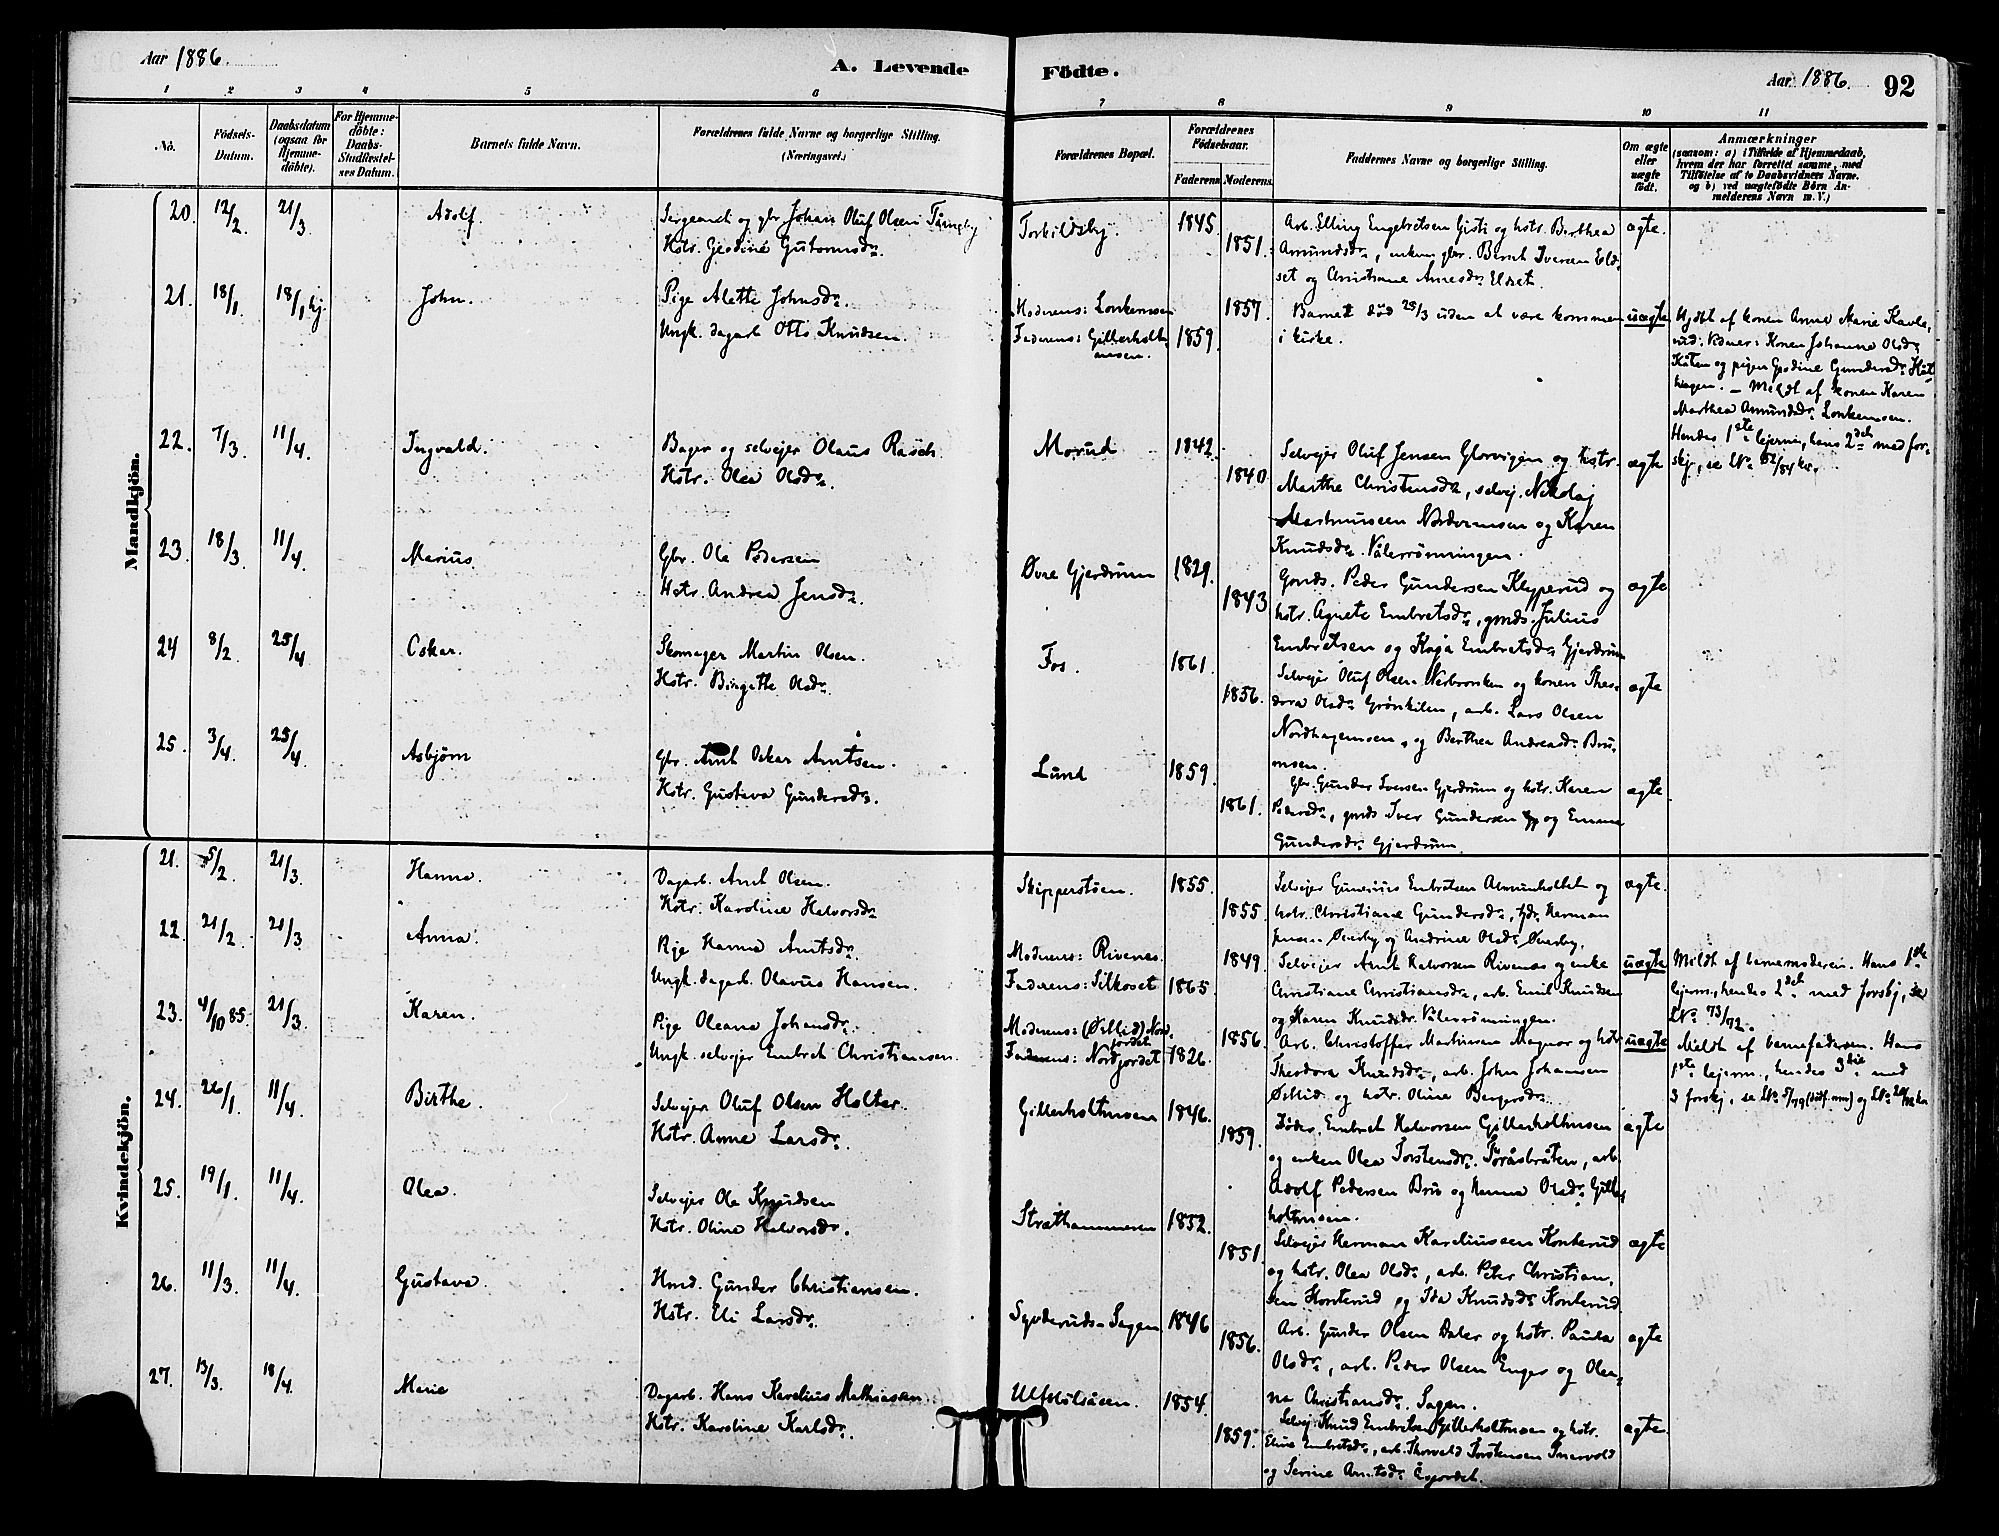 Aar 1886.
A. Levende Födte.
Aar 1886.
92
1 2 3 4 5 6 7 8 9 10 11
No.
Födsels-Datum.
Daabsdatum (ogsaa for Hjemmedöbte).
For Hjemmedöbte: Daabs-Stadfæstelses Datum.
Barnets fulde Navn.
Forældrenes fulde Navne og borgerlige Stilling. (Næringsvei.)
Forældrenes Bopæl.
Forældrenes Födselsaar.
Faderens. Moderens.
Faddernes Navne og borgerlige Stilling.
Om ægte eller uægte födt.
Anmærkninger
(saasom: a) i Tilfælde af Hjemmedaab, hvem der har forrettet samme, med Tilföielse af to Daabsvidners Navne, og b) ved uægtefödte Börn Anmelderens Navn m. V.)
Mandkjön.
20. 12/2 21/3 Adolf.
Sergeant og gbr. Johan Oluf Olsen
Hstr. Gustine Gutormsdr.
Torkildsby. 1845. 1851.
Arb. Elling Engebretsen Gisti og hstr. Berthea
Amundsdr, enkem. gbr. Bernt Iversen Eld-
set og Christiane Arnesdr Eldset.
ægte.
21. 18/1 18/1 hj. John.
Pige Alette Johnsdr.
Ungk. dagarb. Otto Knudsen.
Moderens: Lonkemoen
Faderens: Gillerholt-
moen.
1859. 1857.
Barnet död 25/3 uden at være kommen
i kirke.
uægte
Hjdbt af konen Anne Marie
Vidner: Konen Johanne Olsdr
og pigen Gundersdr
Meldt af konen Karen
Marthea Amundsdr. Lonkemoen.
Hendes 1ste lejerm., hans 2det med for-
skj, se No 82/84
22. 7/3 11/4 Ingvald.
Bager og selvejer Olaus Rasch.
Hstr. Olea Olsdr.
Morud 1842. 1840.
Selvejer Oluf Jensen Glorvigen og hstr.
Marthe Christensdr, selvej. Nikolaj
og Karen
Knudsdr. Vålerrönningen.
ægte
23. 18/3 11/4 Marius.
Gbr. Ole Pedersen
Hstr. Andrea Jensdr.
Øvre Gjerdrum 1829. 1843
Gmds. Peder Gundersen Klypperud og
hstr. Agnete Embretsdr, gmds. Julius
Embretsen og Kaja Embretsdr Gjerdrum
ægte
24 8/2 25/4 Oskar.
Skomager Martin Olsen.
Hstr. Birgitte Olsdr.
Fos. 1861. 1856.
Selvejer Oluf Olsen og konen Theo-
dora Olsdr Grönkilen, arb. Lars Olsen
Nordhagenmoen, og Berthea Andreasdr. Bru-
moen.
ægte
25. 3/4 25/4 Asbjörn
Gbr. Arnt Oskar Arntsen.
Hstr. Gustava Gundersdr.
Lund 1859. 1861.
Gbr. Gunder Iversen Gjerdrum og hstr. Karen
Pedersdr, gmds Iver Gundersen og Emma
Gundersdr. Gjerdrum.
ægte
Kvindekjön.
21. 5/2 21/3 Hanna.
Dagarb. Arnt Olsen.
Hstr. Karoline Halvorsdr
Skipperstöen. 1855. 1855.
Selvejer Gunerius Embretsen og
hstr. Christiane Gundersdr, Herman
Øverby og Andrine Olsdr Øverby.
ægte.
22. 21/2 21/3 Anna.
Pige Hanna Arntsdr.
Ungk. dagarb. Olavus Hansen.
Moderens: Rivenes.
Faderens: Silkoset 1865. 1849.
Selvejer Arnt Halvorsen Rivenæs og enke
Christiane Christiansdr, arb. Emil Knudsen
og Karen Knudsdr. Vålerrönningen.
uægte
Meldt af barnemoderen. Hans 1ste
lejerm., hendes 2det med forskj, se
No 73/72.
23. 4/10 85. 21/3 Karen.
Pige Oleana Johansdr.
Ungk. selvejer Embret Christiansen.
Moderens: (Ødlid) Nord-
jordet
Faderens: Nordjordet 1826. 1856.
Arb. Christoffer Martinsen Magnor og hstr.
Theodora Knudsdr, arb. John Johansen
Ødlid og hstr. Oline Bergersdr.
uægte
Meldt af barnefaderen. Hans
1ste lejerm., hendes 3die med
3 forskj, se No 5/79
24. 26/1 11/4 Birthe.
Selvejer Oluf Olsen Holter.
Hstr. Anne Larsdr.
Gillerholtmoen 1846. 1859.
Föder. Embret Halvorsen Gillerholtmoen
og enken Olea Torstensdr. Toråsbråten, arb.
Adolf Pedersen Bru og Hanna Olsdr Giller-
holtmoen.
ægte
25. 19/1 11/4 Olea.
Selvejer Ole Knudsen
Hstr. Oline Halvorsdr.
Stråthammeren 1852. 1851.
Selvejer Herman Kareliussen Konterud
og hstr. Olea Olsdr, arb. Peter Christian-
sen Konterud og Ida Knudsdr Konterud
ægte
26. 11/3 11/4 Gustava.
Hmd. Gunder Christiansen.
Hstr. Eli Larsdr.
Syverrud-Sagen 1846 1856.
Arb. Gunder Olsen Daler og hstr. Paula
Olsdr, arb. Peder Olsen Enger og Olea-
na Christiansdr. Sagen.
ægte
27. 13/3 18/4 Marie
Dagarb. Hans Karelius Mathiassen
Hstr. Karoline Karlsdr.
1854. 1859.
Selvej Knud Embretsen Gillerholtmoen og hstr.
Eline Embretsdr, arb. Thorvald Torstensen
og Serine Arntsdr
ægte